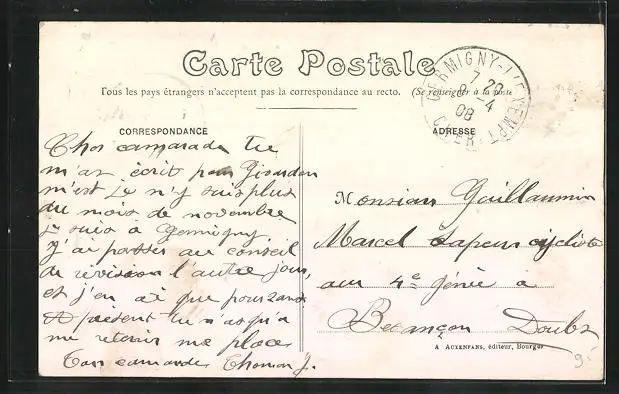 Carte Postale
Tous les pays étrangers n'acceptent pas la correspondance au recto. (Se renseigner à la poste
GERMIGNY-L'EXEMPT
7 20
9 - 4
08
CHER
CORRESPONDANCE
ADRESSE
Cher camarade tu
m'as écrit pour
m'est je n'y suis plus
du mois de novembre
je suis à Germigny
j'ai passer au conseil
de revision l'autre jour,
et j'en ai que pour 2 ans
A présent tu n'as qu'a
me retenir me place
Ton camarade Thomas J.
Monsieur Guillaumin
Marcel Sapeur cycliste
au 4e Génie à
Besançon Doubs
A AUXENFANS, éditeur, Bourges